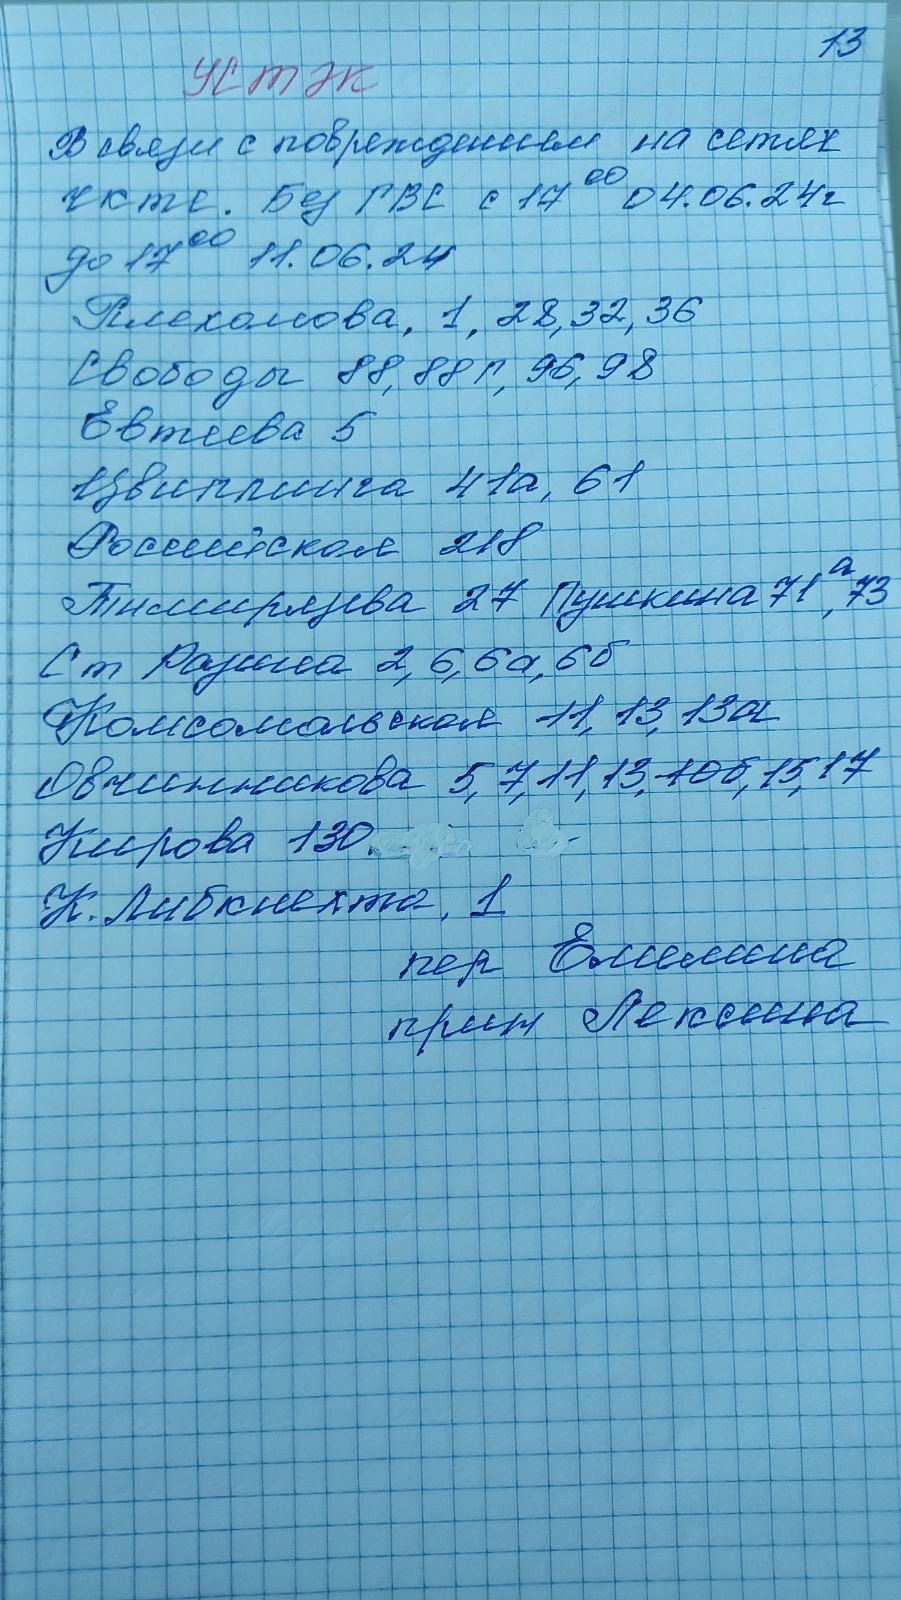 13
УСТЭК
В связи с повреждением на сетях
ЧКТС. Без ГВС с 17⁰⁰ 04.06.24г
до 17⁰⁰ 11.06.24
Плеханова, 1, 28, 32, 36
Свободы 88, 88г, 96, 98
Евтеева 5
Цвиллинга 41а, 61
Российская 218
Тимирязева 27 Пушкина 71а, 73
Ст Разина 2, 6, 6а, 6б
Комсомольская 11, 13, 13а
Овчинникова 5, 7, 11, 13, 10б, 15, 17
Кирова 130.
К. Либкнехта, 1
пер Емелина
прин Лексина